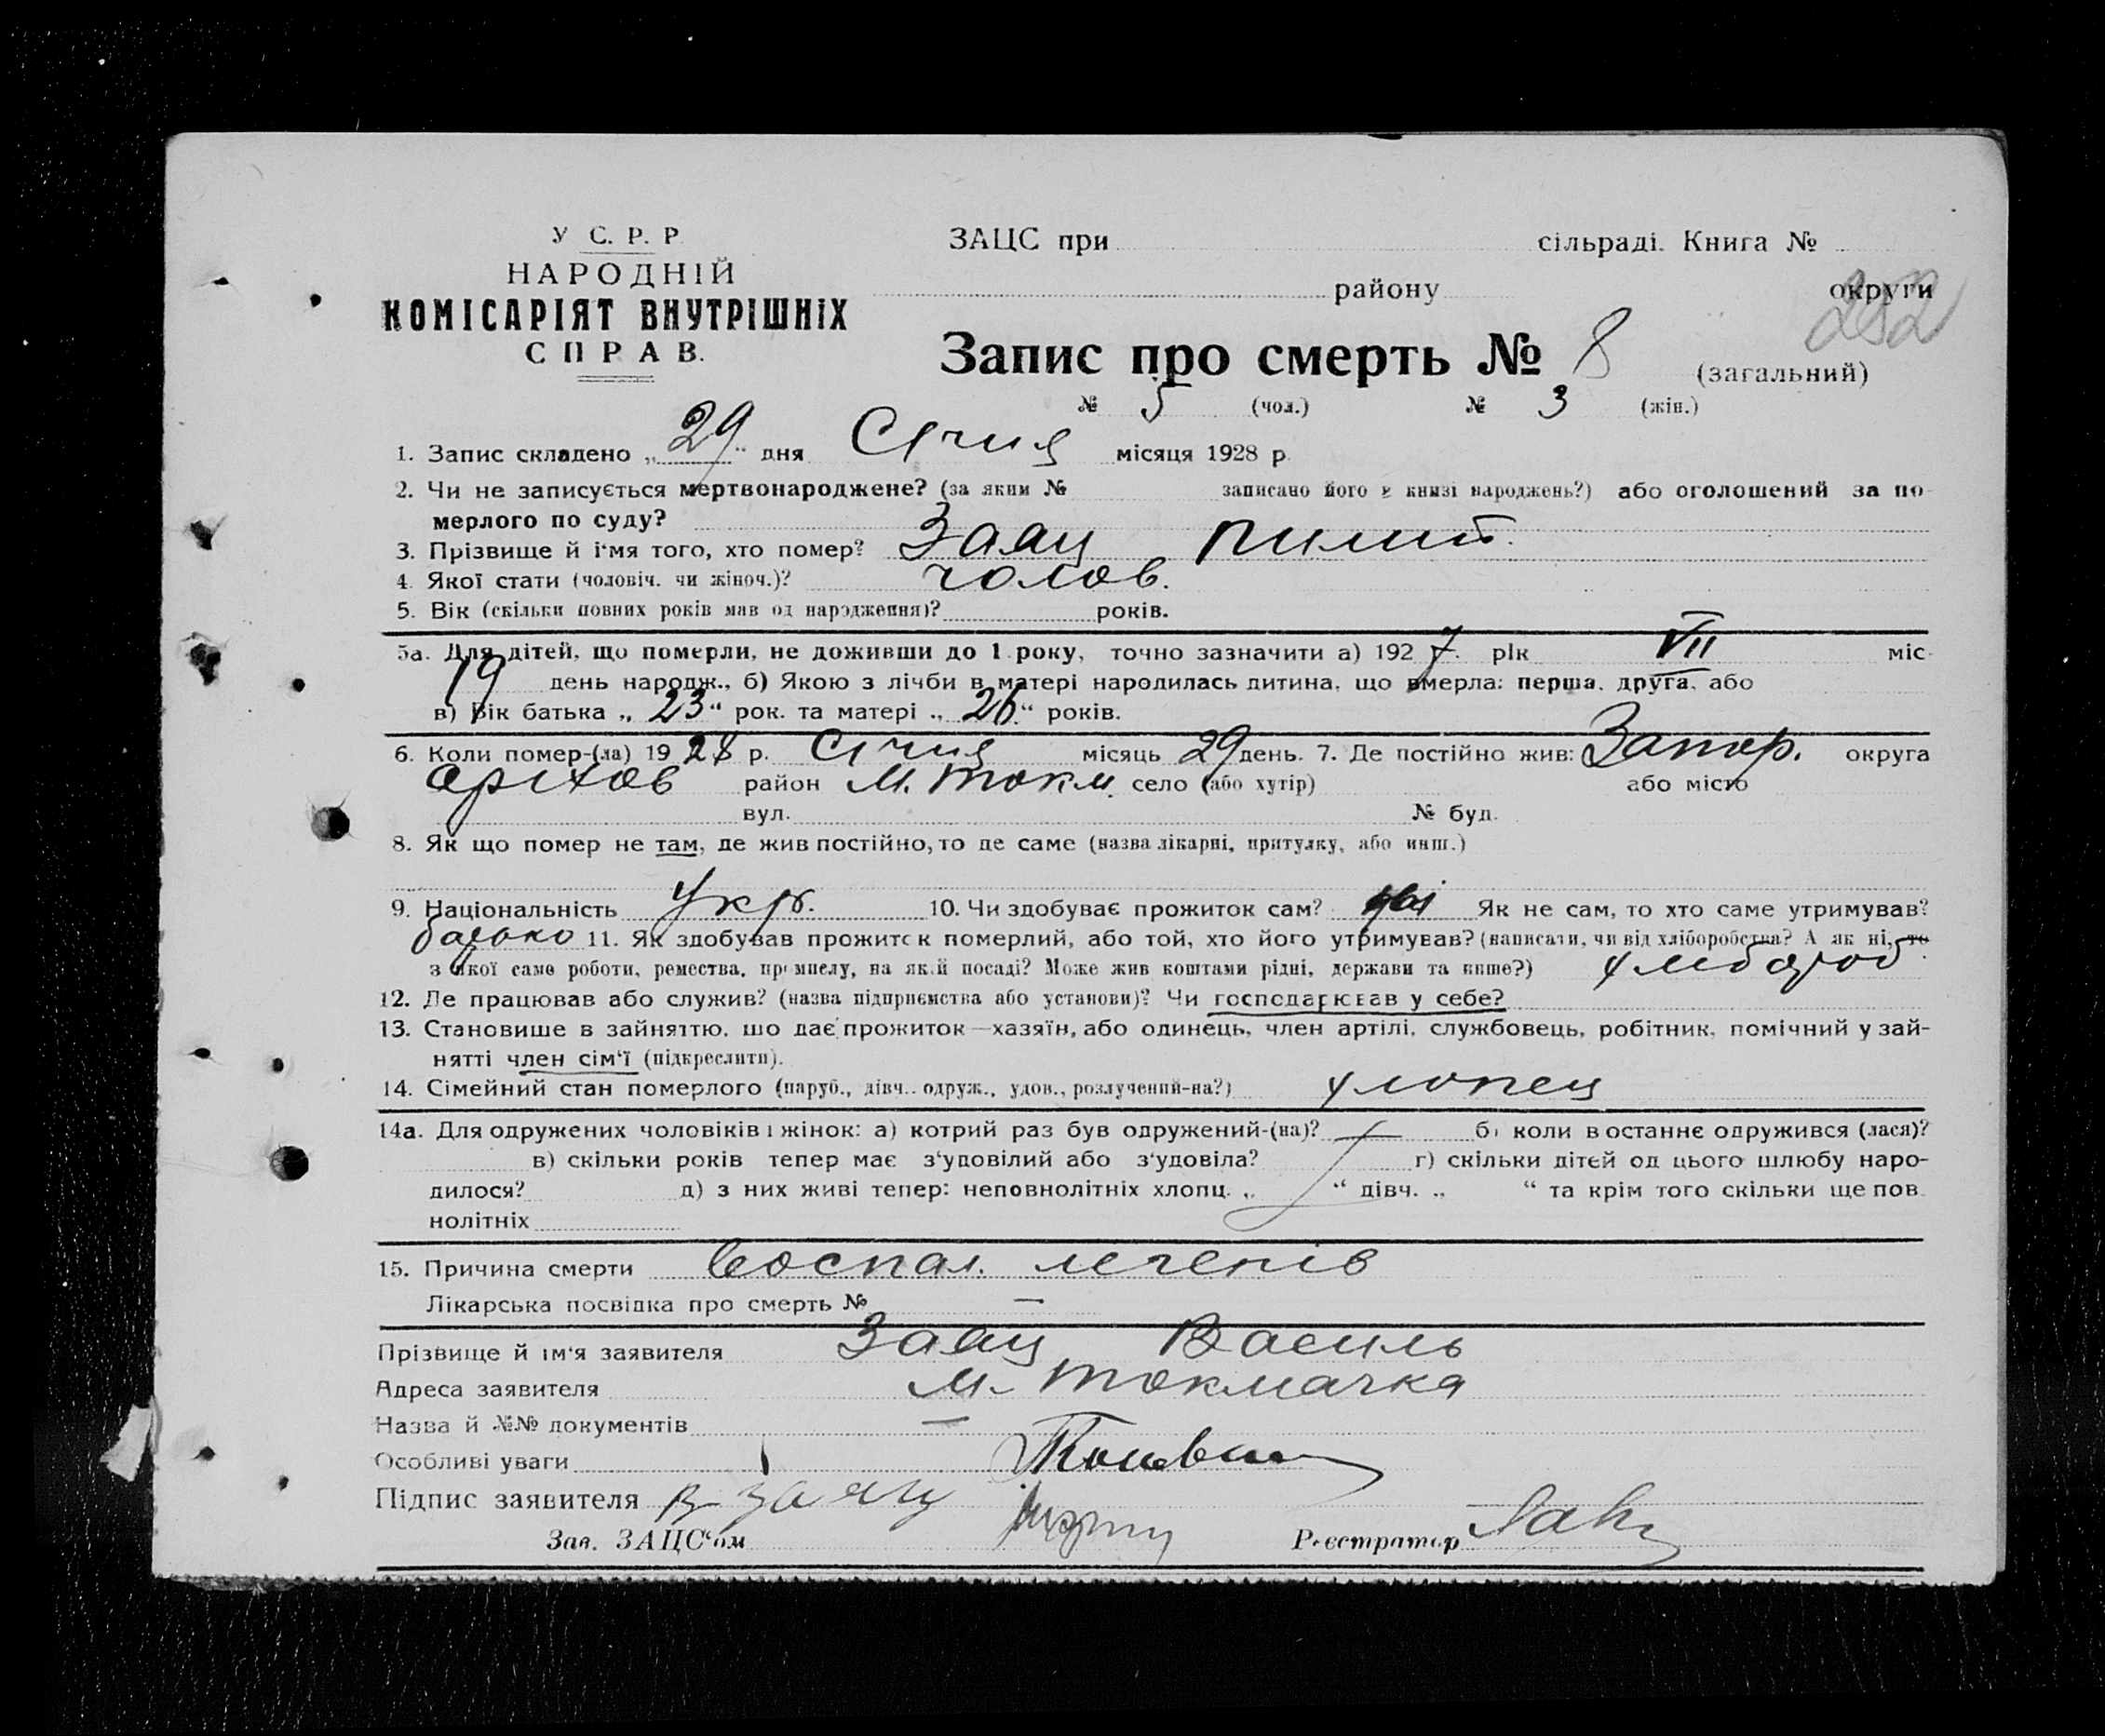 У С. Р. Р
НАРОДНІЙ
КОМІСАРІЯТ ВНУТРІШНІХ
СПРАВ.
ЗАЦС при сільраді. Книга №
району округи
252
Запис про смерть № 8 (загальний)
№ 5 (чол.) № 3 (жін.)
1. Запис складено „29“ дня Січня місяця 1928 р.
2. Чи не записується мертвонароджене? (за яким № записано його в книзі народжень?) або оголошений за по-
мерлого по суду?
3. Прізвище й і'мя того, хто помер? Заяц Пилип.
4. Якої стати (чоловіч. чи жіноч.)? чолов.
5. Вік (скільки повних років мав од народження)? років.
5а. Для дітей, що померли, не доживши до 1 року, точно зазначити а) 1927. рік VII міс.
19 день народж., б) Якою з лічби в матері народилась дитина, що вмерла: перша, друга, або
в) Вік батька „23“ рок. та матері „26“ років.
6. Коли помер-(ла) 1928 р. Січня місяць 29 день. 7. Де постійно жив: Запор. округа
Оріхов район М. Токм. село (або хутір) або місто
вул. № буд.
8. Як що помер не там, де жив постійно, то де саме (назва лікарні, притулку, або инш.)
9. Національність Укр. 10. Чи здобуває прожиток сам? Як не сам, то хто саме утримував?
батько 11. Як здобував прожиток померлий, або той, хто його утримував? (написати, чи від хліборобства? А як ні, то
з якої саме роботи, ремества, промислу, на якій посаді? Може жив коштами рідні, держави та инше?) хлібороб.
12. Де працював або служив? (назва підприємства або установи)? Чи господарював у себе?
13. Становище в зайняттю, що дає прожиток—хазяїн, або одинець, член артілі, службовець, робітник, помічний у зай-
нятті член сім'ї (підкреслити).
14. Сімейний стан померлого (паруб., дівч., одруж., удов., розлучений-на?) хлопец
14а. Для одружених чоловіків і жінок: а) котрий раз був одружений-(на)? б) коли в останнє одружився (лася)?
в) скільки років тепер має з'удовілий або з'удовіла? г) скільки дітей од цього шлюбу наро-
дилося? д) з них живі тепер: неповнолітніх хлопц. „ “ дівч. „ “ та крім того скільки ще пов.
нолітніх
15. Причина смерти воспал. легенів
Лікарська посвідка про смерть № —
Прізвище й ім'я заявителя Заяц Василь
Адреса заявителя М- Токмачка
Назва й №№ документів —
Особливі уваги
Підпис заявителя В Заяц
Зав. ЗАЦС'ом Реєстратор